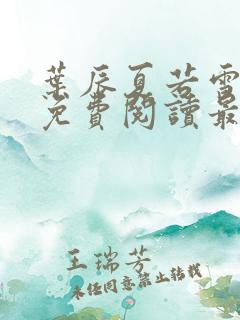 葉辰夏若雪
免費閱讀最
王瑞芳
未經同意禁止轉載